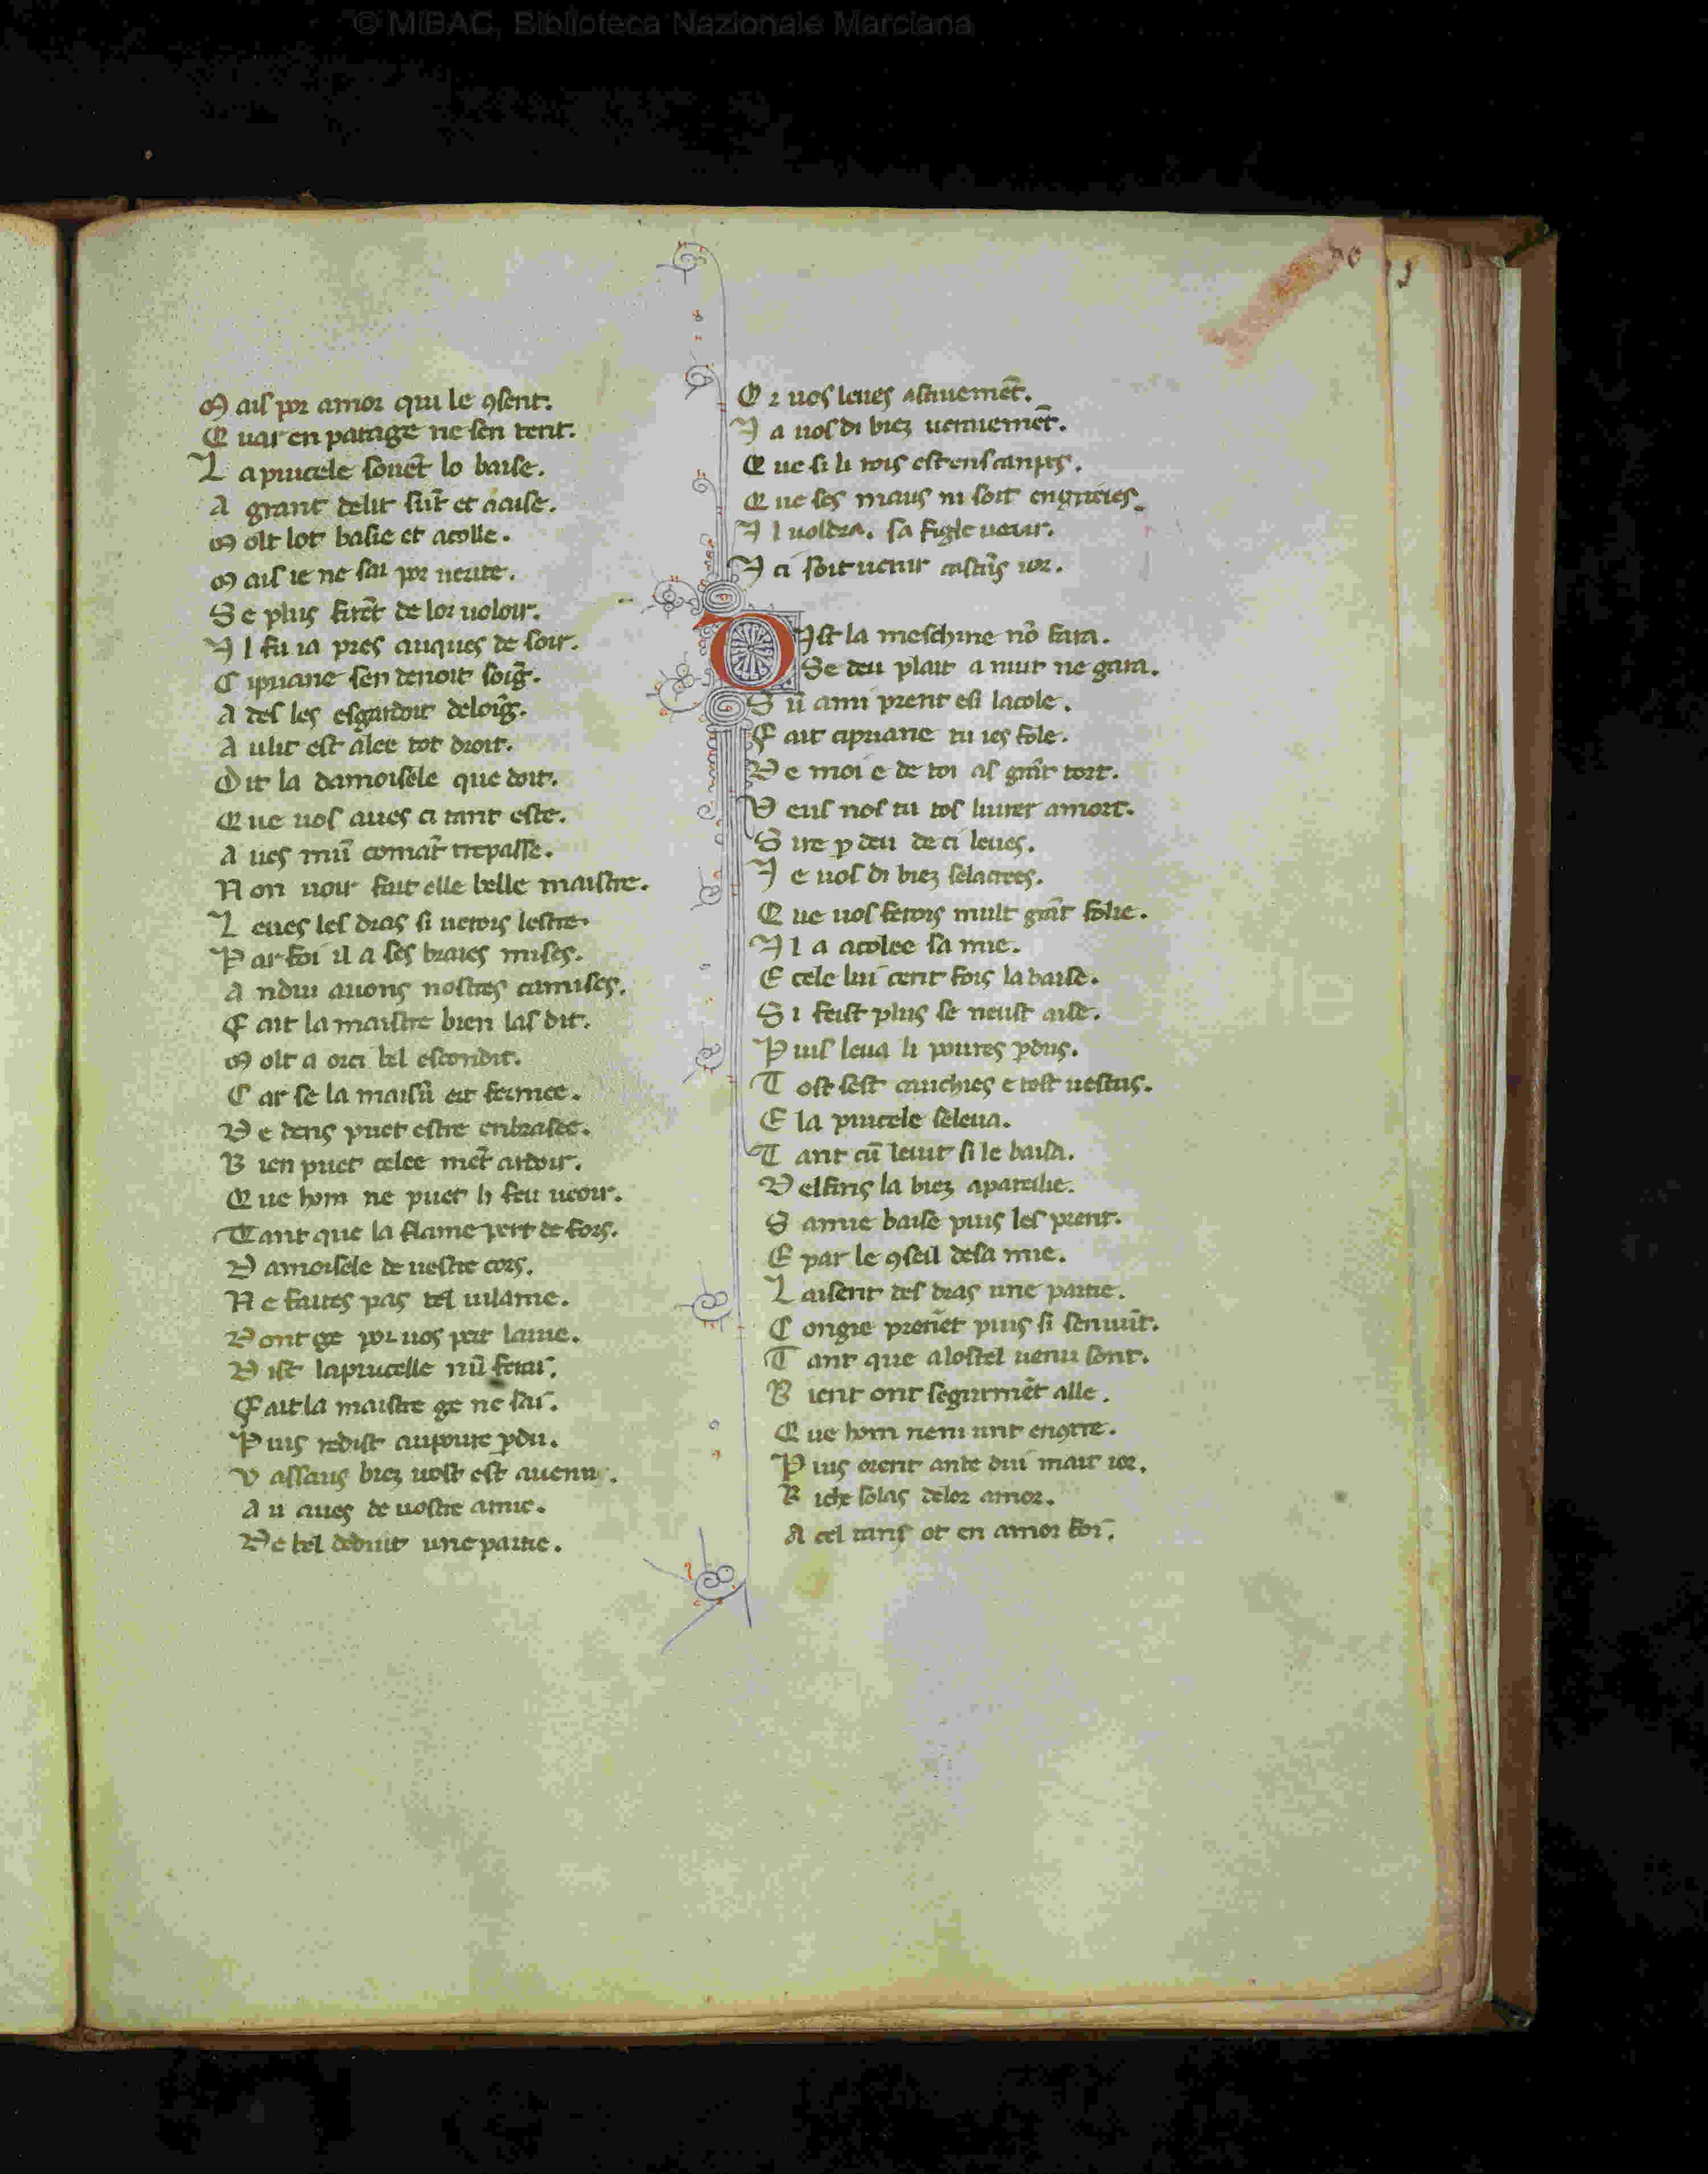 © MiBAC, Biblioteca Nazionale Marciana
M ais por amor qui le ꝯsent.
Q uar en parage ne sen tent.
L a pucele souēt lo baise.
A grant delit sūt et a aise.
M olt lot baisie et acolle.
M ais ie ne sai por uerite.
S e plus firēt de lor uoloir.
I l fu ia pres auques de soir.
C ipriane sen denoit soīg.
A des les esgardoit deloīg.
A ulit est alee tot droit.
D it la damoisele que doit.
Q ue uos aues ci tant este.
A ues mū comāt trepasse.
N on uoir fait elle belle maistre.
L eues les dras si uerois lestre.
P ar foi il a ses braies mises.
A ndui auons nostres camises.
F ait la maistre bien las dit.
M olt a orci bel escondit.
C ar se la maisū est fermee.
D e dens puet estre enbrasee.
B ien puet celee mēt ardoir.
Q ue hom ne puet li feu ueoir.
T ant que la flame pert de fors.
D amoisele de uestre cors.
N e faites pas tel uilanie.
D ont ge por uos pert lauie.
D ist lapucelle nū ferai.
F ait la maistre ge ne sai.
P uis redist aupoure ꝑdu.
V assaus biez uost est auenu.
A u aues de uostre amie.
D e bel deduit une partie.
O r uos leues astiuemēt.
I a uos di biez uerauemēt.
Q ue si li rois est ens
Q ue ses maus ni soit engrieies.
I l uoldra. sa figle ueoir.
I ci soit uenir
D Ist la meschine nō fara.
Se deu plait a nuit ne gara.
S ū ami prent esi lacole.
F ait cipriane tu ies fole.
D e moi e de toi as grāt tort.
V eus nos tu tos liurer amort.
S ire ꝑ deu de ci leues.
I e uos di biez selacrees.
Q ue uos ferois mult grāt folie.
I l a acolee sa mie.
E cele lui cent fois la baise.
S i feist plus se neust aise.
P uis leua li poures ꝑdus.
T ost sest cauchies e tost uestus.
E la pucele seleua.
T ant cū leuit si le baisa.
D elfins la biez apareilie.
S amie baise puis les prent.
E par le ꝯseil desa mie.
L aisent des dras une partie.
C ongie prenēt puis si senuūt.
T ant que a lostel uenu sont.
B ient ont segurmēt alle.
Q ue hom nem unt enꝯtre.
P uis orent ante dui mait ior.
R iche solas delor amor.
A cel tans ot en amor foi.